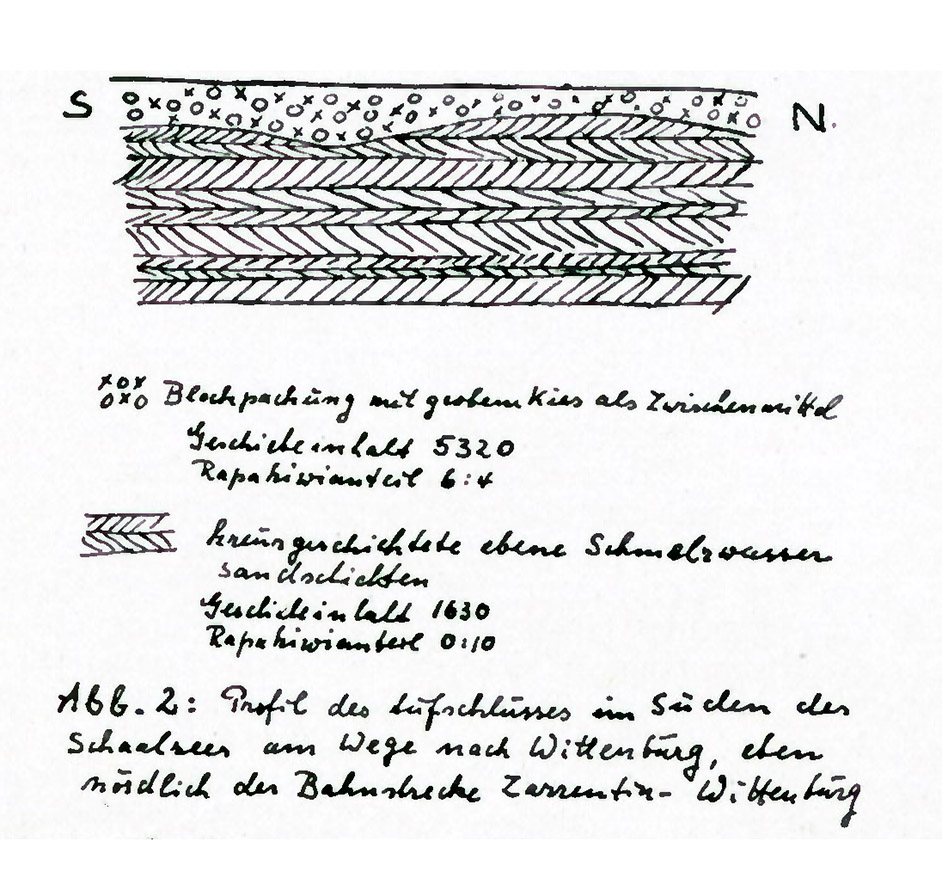 S
N.
Blockpackung mit grobem Kies als Zwischenmittel
Geschiebeinhalt 5320
Rapakiwianteil 6:4
kreuzgeschichtete ebene Schmelzwasser
sandschichten
Geschiebeinhalt 1630
Rapakiwianteil 0:10
Abb. 2: Profil des Aufschlusses im Süden des
Schaalsees am Wege nach Wittenburg, eben
nördlich der Bahnstrecke Zarrentin- Wittenburg